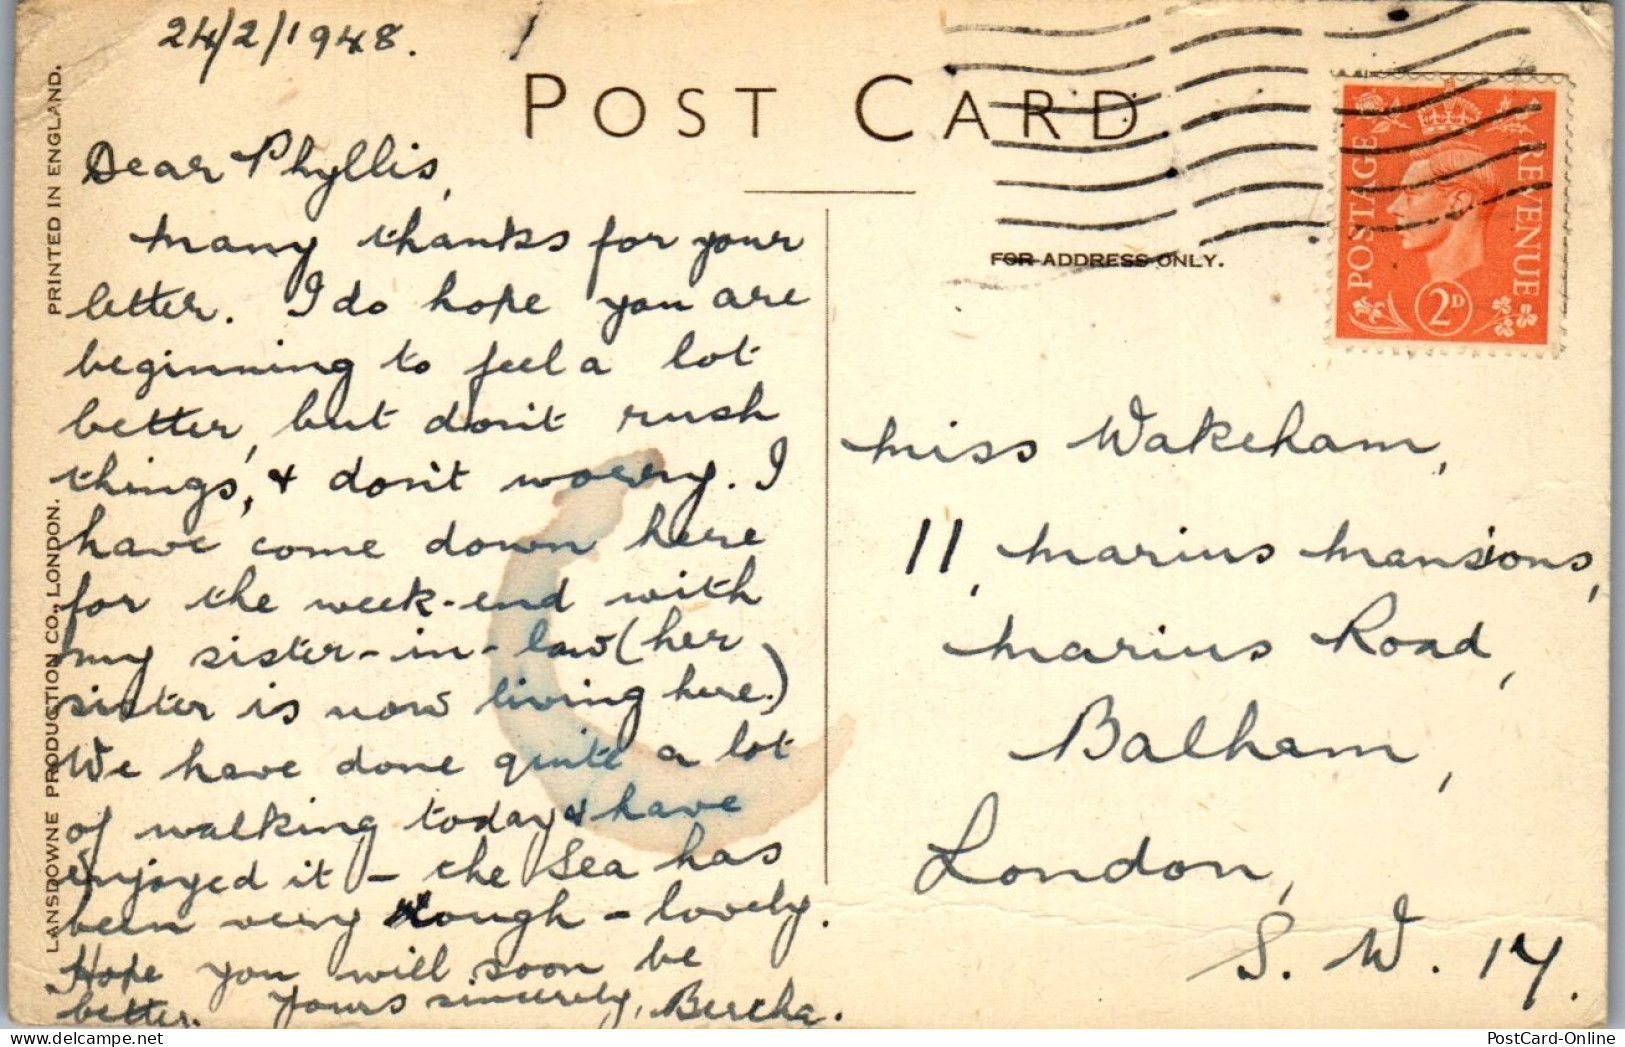 24/2/1948.
POST CARD
PRINTED IN ENGLAND.
LANSDOWNE PRODUCTION CO., LONDON.
Dear Phyllis,
Many thanks for your
letter. I do hope you are
beginning to feel a lot
better, but don't rush
things, & don't worry. I
have come down here
for the week-end with
my sister-in-law (her
sister is now living here.)
We have done quite a lot
of walking today & have
enjoyed it - the Sea has
been very rough - lovely.
Hope you will soon be
better. Yours sincerely, Bertha.
POSTAGE
REVENUE
2D
FOR ADDRESS ONLY.
Miss Wakeham,
11, Marius Mansions,
Marius Road,
Balham,
London,
S. W. 17.
PostCard-Online